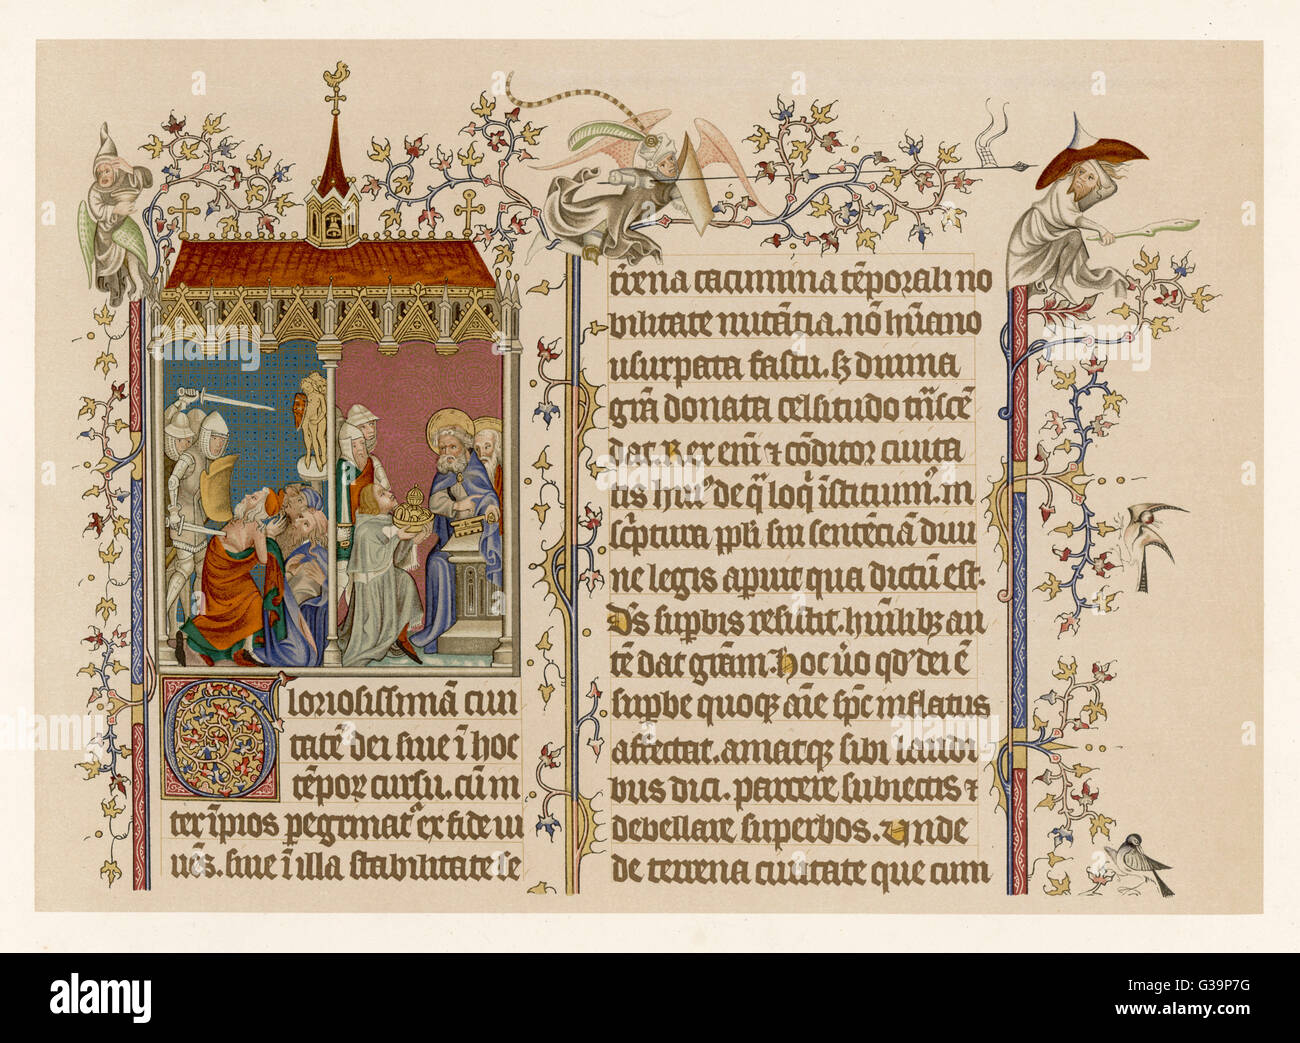 Gloriosissimā ciui
tatē dei siue ī hoc
tēpor̄ cursu. cū īn
ter īpios pegrinat̄ ex fide ui
uēs. siue ī illa stabilitate se
trena cacumina tēporali no
bilitate nutātia. nō hūano
usurpata fastu. sꝫ diuina
grā donata celsitudo trāscē
dat. Rex enī ⁊ cōditor ciuita
tis huiꝰ de q̄ loqͥ īstituimꝰ. in
scͥptura ppl̄i sui sentēciā diui
ne legis apuit qua dictū est.
Ds̄ supbis resistit. hūilibꝫ au
tē dat grām. hoc uͦo qd̓ dei ē
supbe quoqꝫ aīe sp̄c inflatus
affectat. amatqꝫ sibi laudi
bus dici. parcere subiectis ⁊
debellare superbos. Unde
de terrena ciuitate que cum
alamy
alamy
Image ID: G39P7G
www.alamy.com